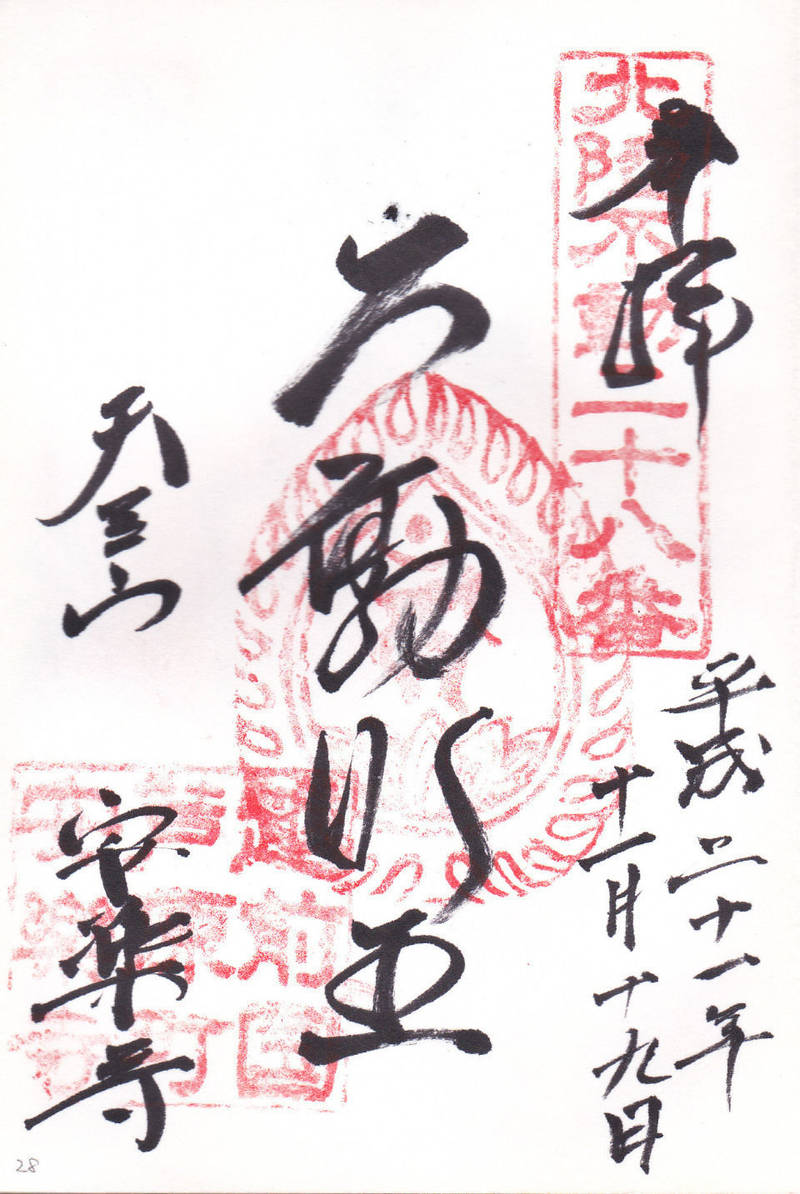 奉拝
北陸不動二十八番
平成二十一年
十一月十九日
不動明王
越前国
安楽寺
28